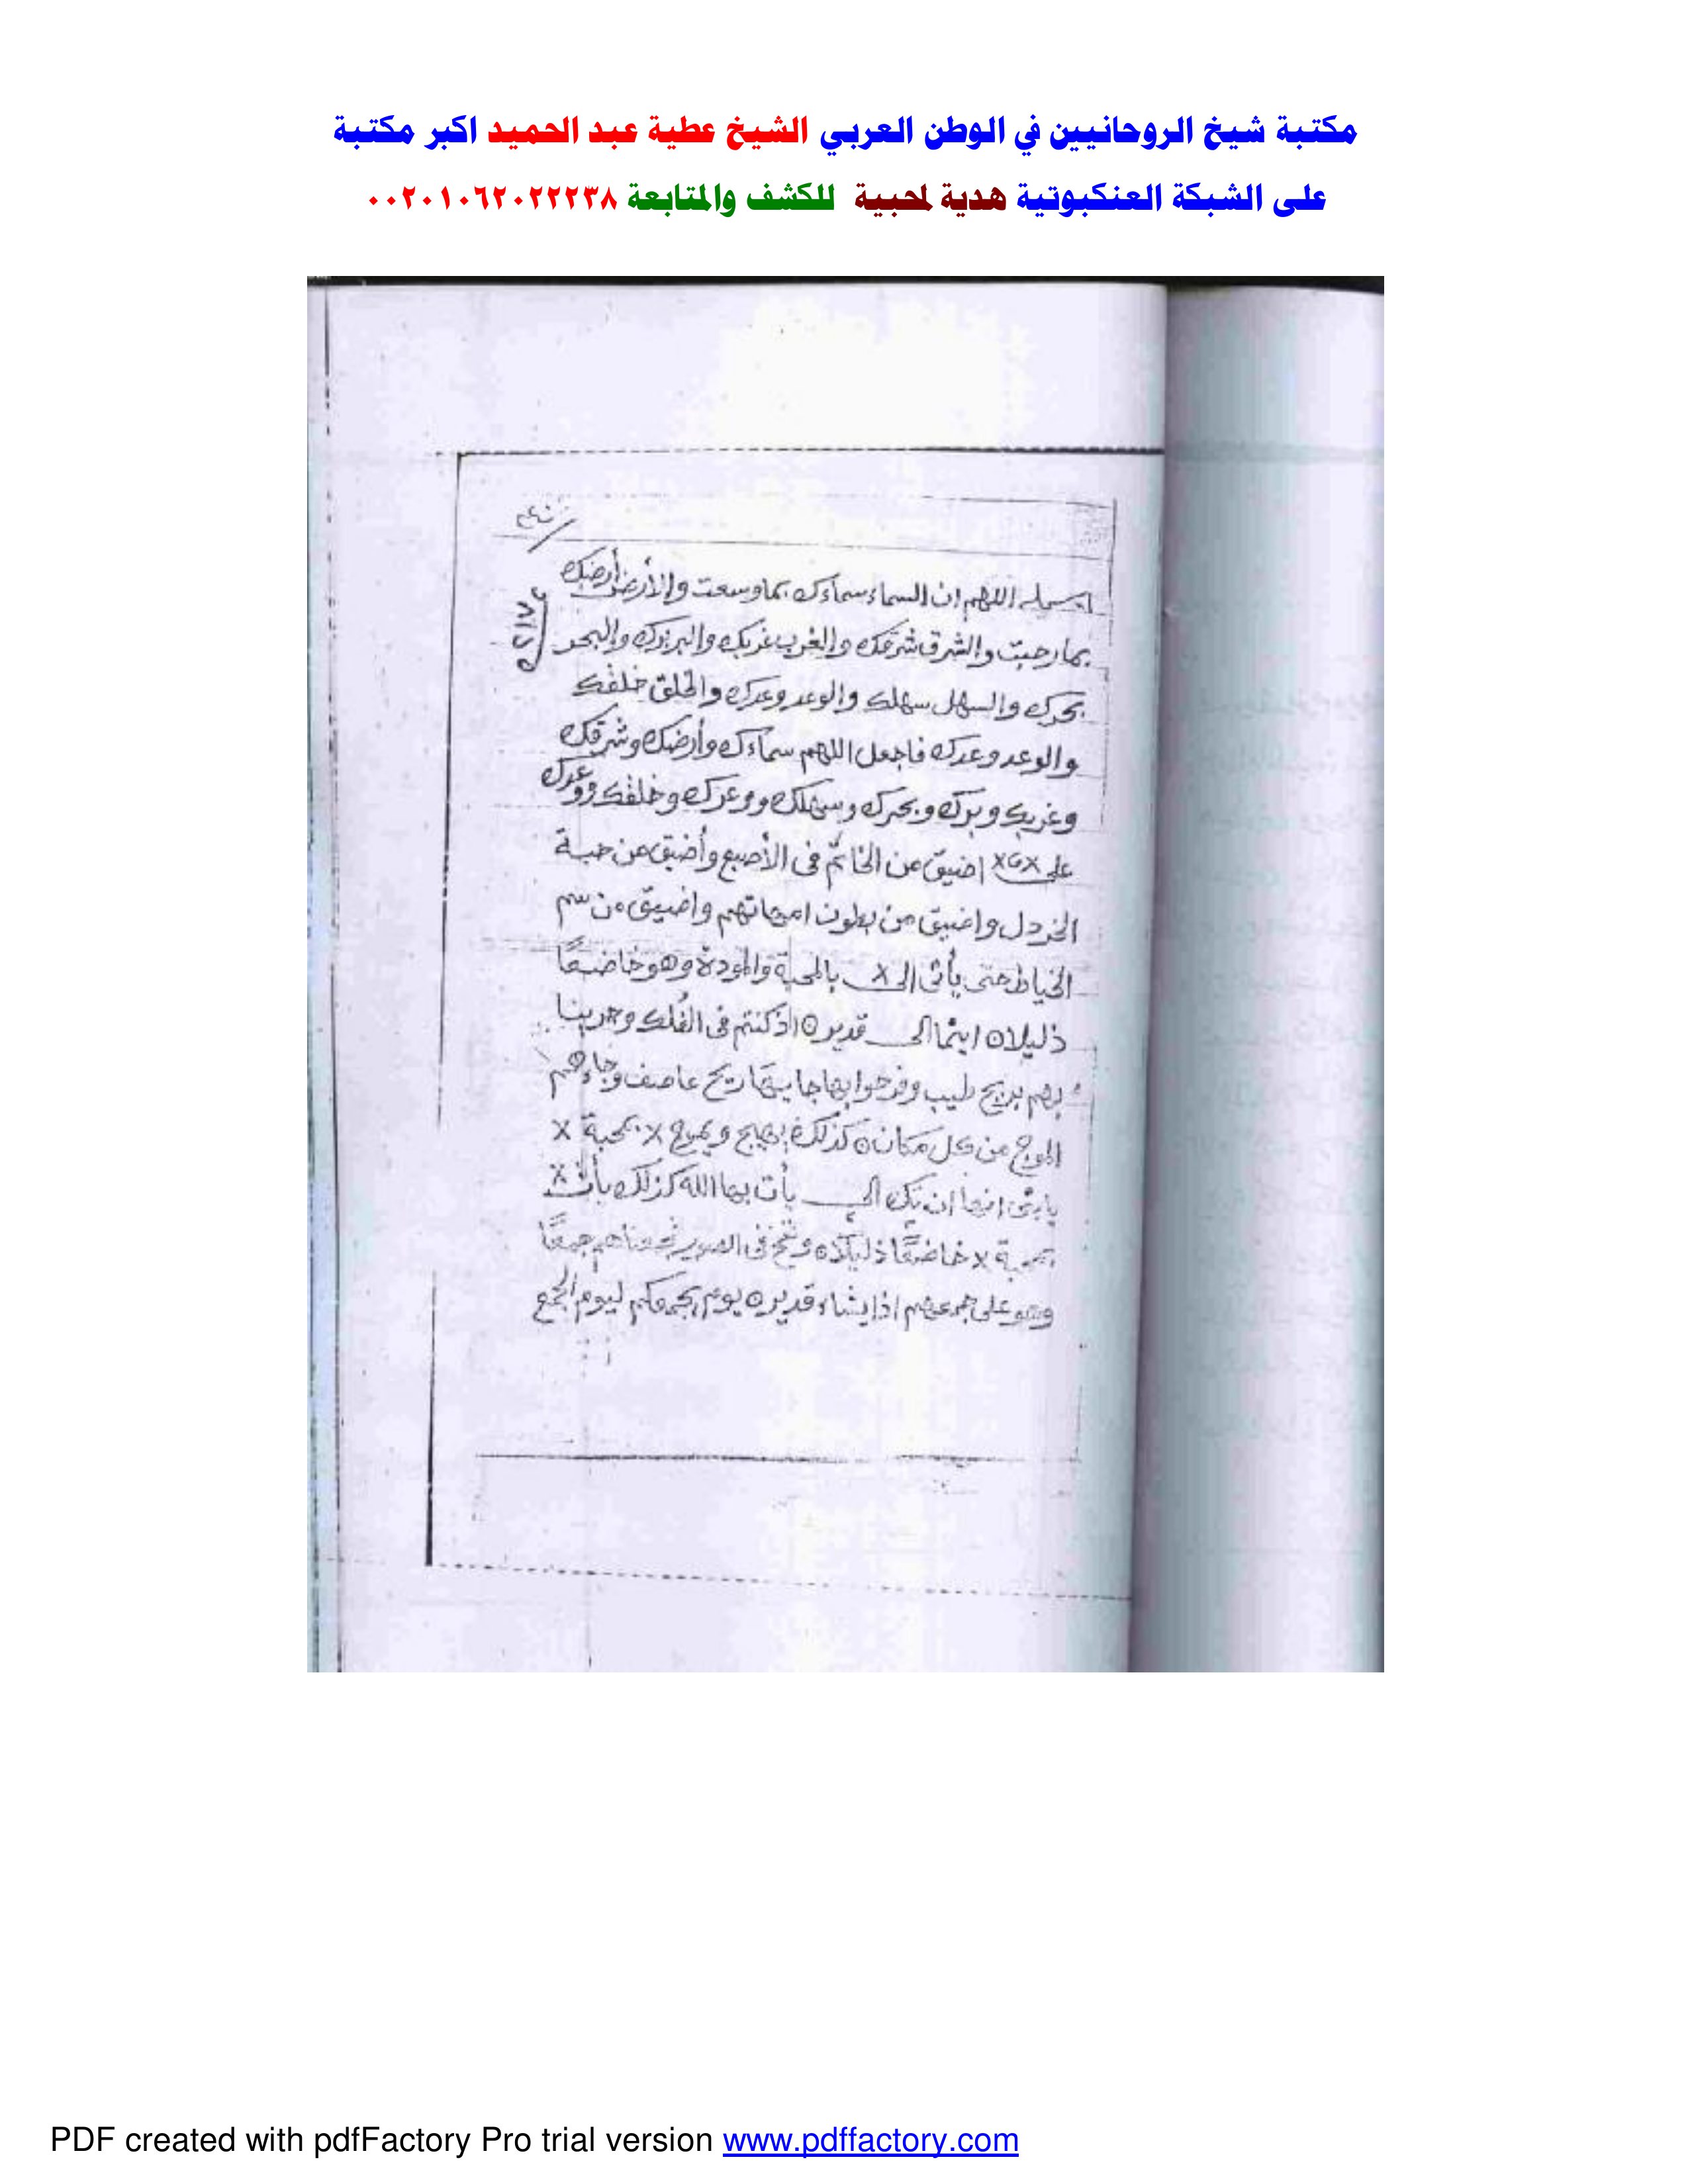 مكتبة شيخ الروحانيين في الوطن العربي الشيخ عطية عبد الحميد اكبر مكتبة
على الشبكة العنكبوتية هدية لمحبية للكشف والمتابعة ٠٠٢٠١٠٦٢٠٢٢٢٣٨
اللهم ان السماء سماءك بما وسعت والأرض أرضك
بما رحبت والشرق شرقك والغرب غربك والبر برك والبحر
بحرك والسهل سهلك والوعد وعدك والخلق خلفك
والوعد وعدك فاجعل اللهم سماءك وأرضك وشرقك
وغربك وبرك وبحرك وسهلك ووعدك وخلفك ووعدك
على x x اضيق من الخاتم فى الأصبع وأضيق من حبة
الخردل واضيق من بطون امهاتهم واضيق من سم
الخياط حتى يأتى الى x بالمحبة والمودة وهو خاضعًا
ذليلا ه اينما الى قدير ه اذ كنتم فى الفلك وجرينا
بهم بريح طيب وفرحوا بها جايتها ريح عاصف وجاءهم
الموج من كل مكان ه كذلك يهيج ويموج x بمحبة x
يابنى انها ان تك الى يأت بها الله كذلك يأت x
بمحبة x خاضعًا ذليلا ه ونفخ فى الصور فجمعناهم جمعًا
وهو على جمعهم اذا يشاء قدير ه يوم يجمعكم ليوم الجمع
PDF created with pdfFactory Pro trial version www.pdffactory.com